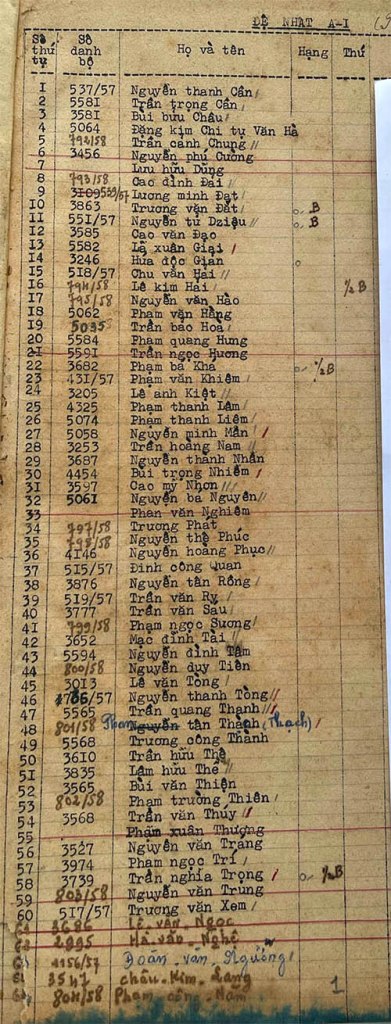 ĐỆ NHẤT A-I
Số thứ tự Số danh bộ Họ và tên Hạng Thứ
I 537/57 Nguyễn thanh Cần
2 558I Trần trọng Cần
3 358I Bùi bửu Châu
4 5064 Đặng kim Chi tự Văn Hà
5 792/58 Trần canh Chung
6 3456 Nguyễn phú Cường
7 Lưu hữu Dũng
8 793/58 Cao đình Đài
9 539/57 Lương minh Đạt
10 3863 Trương văn Đất B
II 55I/57 Nguyễn tử Dziệu B
I2 3585 Cao văn Đạo
I3 5582 Lê xuân Giai
I4 3246 Hứa đốc Gian
I5 5I8/57 Chu văn Hai
I6 794/58 Lê kim Hải ½ B
I7 795/58 Nguyễn văn Hào
I8 5062 Phạm văn Hằng
I9 5035 Trần bảo Hoà
20 5584 Phạm quang Hưng
2I 559I Trần ngọc Hương
22 3682 Phạm bá Kha ½ B
23 43I/57 Phạm văn Khiêm
24 3205 Lê anh Kiệt
25 4325 Phạm thanh Lâm
26 5074 Phạm thanh Liêm
27 5058 Nguyễn minh Mẫn
28 3253 Trần hoàng Nam
29 3687 Nguyễn thành Nhân
30 4454 Bùi trọng Nhiễm
3I 3597 Cao mỹ Nhơn
32 506I Nguyễn bá Nguyên
33 Phan văn Nghiêm
34 797/58 Trương Phát
35 798/58 Nguyễn thế Phúc
36 4I46 Nguyễn hoàng Phục
37 5I5/57 Đinh công Quan
38 3876 Nguyễn tấn Rồng
39 5I9/57 Trần văn Rỵ
40 3777 Trần văn Sáu
4I 799/58 Phạm ngọc Sương
42 3652 Mạc đình Tài
43 5594 Nguyễn đình Tâm
44 800/58 Nguyễn duy Tiên
45 30I3 Lê văn Tòng
46 I786/57 Nguyễn thanh Tòng
47 5565 Trần quang Thạnh
48 801/58 Phan Nguyễn tấn Thạch (Thạch)
49 5568 Trương công Thành
50 36I0 Trần hữu Thế
5I 3835 Lâm hữu Thế
52 3565 Bùi văn Thiện
53 802/58 Phạm trường Thiên
54 3568 Trần văn Thúy
55 Phạm xuân Thượng
56 3527 Nguyễn văn Trang
57 3974 Phạm ngọc Trí
58 3739 Trần nghĩa Trọng ½ B
59 803/58 Nguyễn văn Trung
60 5I7/57 Trương văn Xem
61 3686 Lê văn Ngọc
62 2995 Hà văn Nghệ
63 1156/57 Đoàn văn Ngưỡng
64 3547 Châu Kim Lang
65 804/58 Phạm công Nam
1